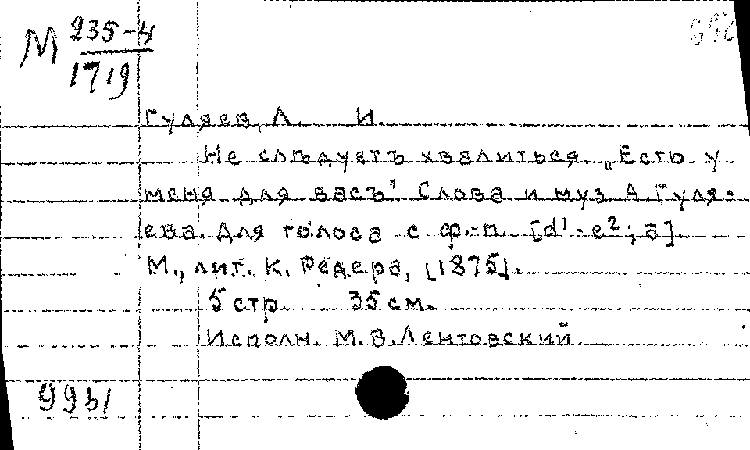 М 235-4
1719
Гуляев, А. И.
Не слѣдуетъ хвалиться. „Есть у
меня для васъ" Слова и муз. А. Гуля-
ева. Для голоса с ф.-п. [d¹-e²; a].
М., лит. К. Редера, [1875].
5 стр. 35 см.
Исполн. М. В. Лентовский.